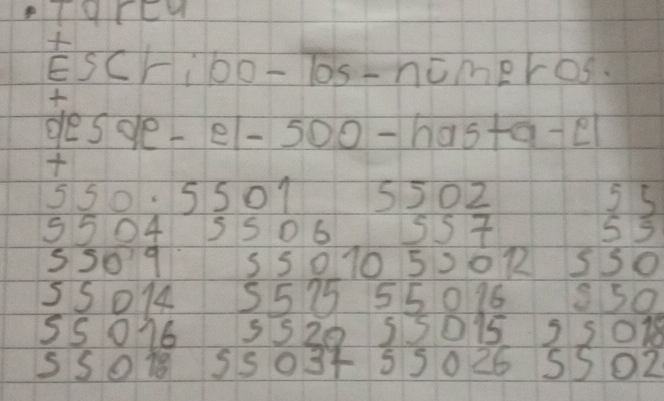 . Tarea
+
Escribo - los - números.
+
desde - el - 500 - hasta - el
+
550. 5501 5502 55
5504 5506 557 55
5509 55010 55012 550
55014 5515 55016 550
55016 5520 55015 55018
55018 55037 55026 5502